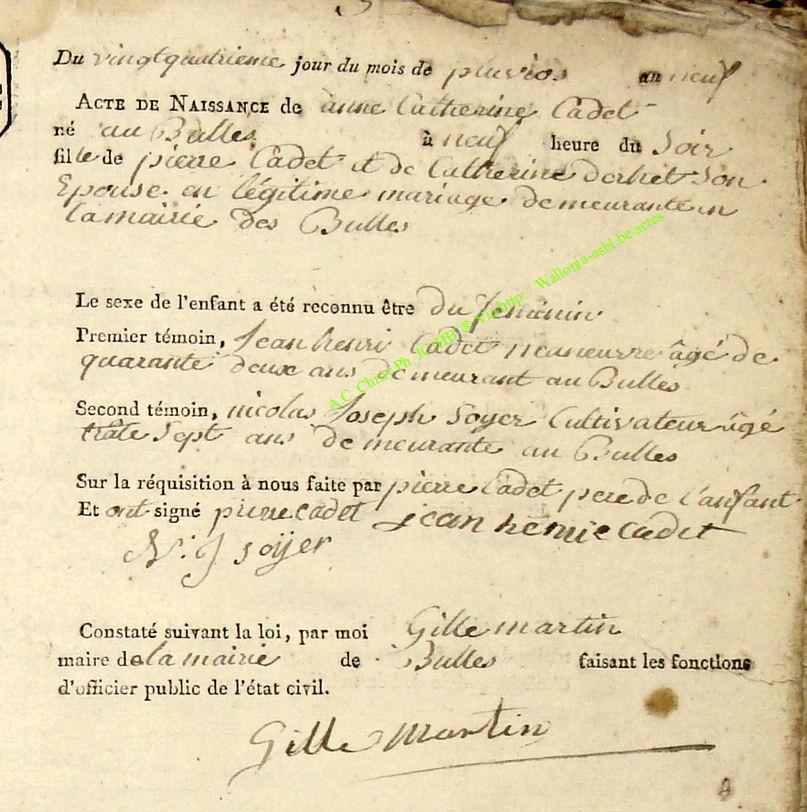 Du vingtquatrieme jour du mois de pluvios an neuf
ACTE DE NAISSANCE de anne Catherine Cadet
né au Bulles à neuf heure du Soir
fille de pierre Cadet et de Catherine derhet Son
Epouse en légitime mariage demeurante en
la mairie des Bulles
Le sexe de l'enfant a été reconnu être du feminin
Premier témoin, Jean henri Cadet maneuvre âgé de
quarante deux ans demeurant au Bulles
Second témoin, nicolas Joseph Soyer Cultivateur âgé
trâte Sept ans demeurante au Bulles
Sur la réquisition à nous faite par pierre Cadet pere de l'anfant
Et ont signé pierre cadet jean henrie cadet
N. J soijer
Constaté suivant la loi, par moi Gille martin
maire de la mairie de Bulles faisant les fonctions
d'officier public de l'état civil.
Gille Martin
A.C. Chiny Ph. http:// Wallonia-asbl.be/actes